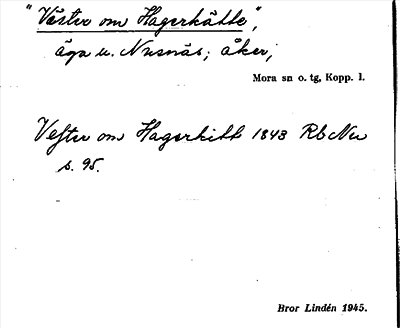 "Väster om Hagerkätte",
äga u. Nusnäs; åker;
Mora sn o. tg, Kopp. l.
Vester om Hagerkitt 1848 Rb Nu
s. 95.
Bror Lindén 1945.